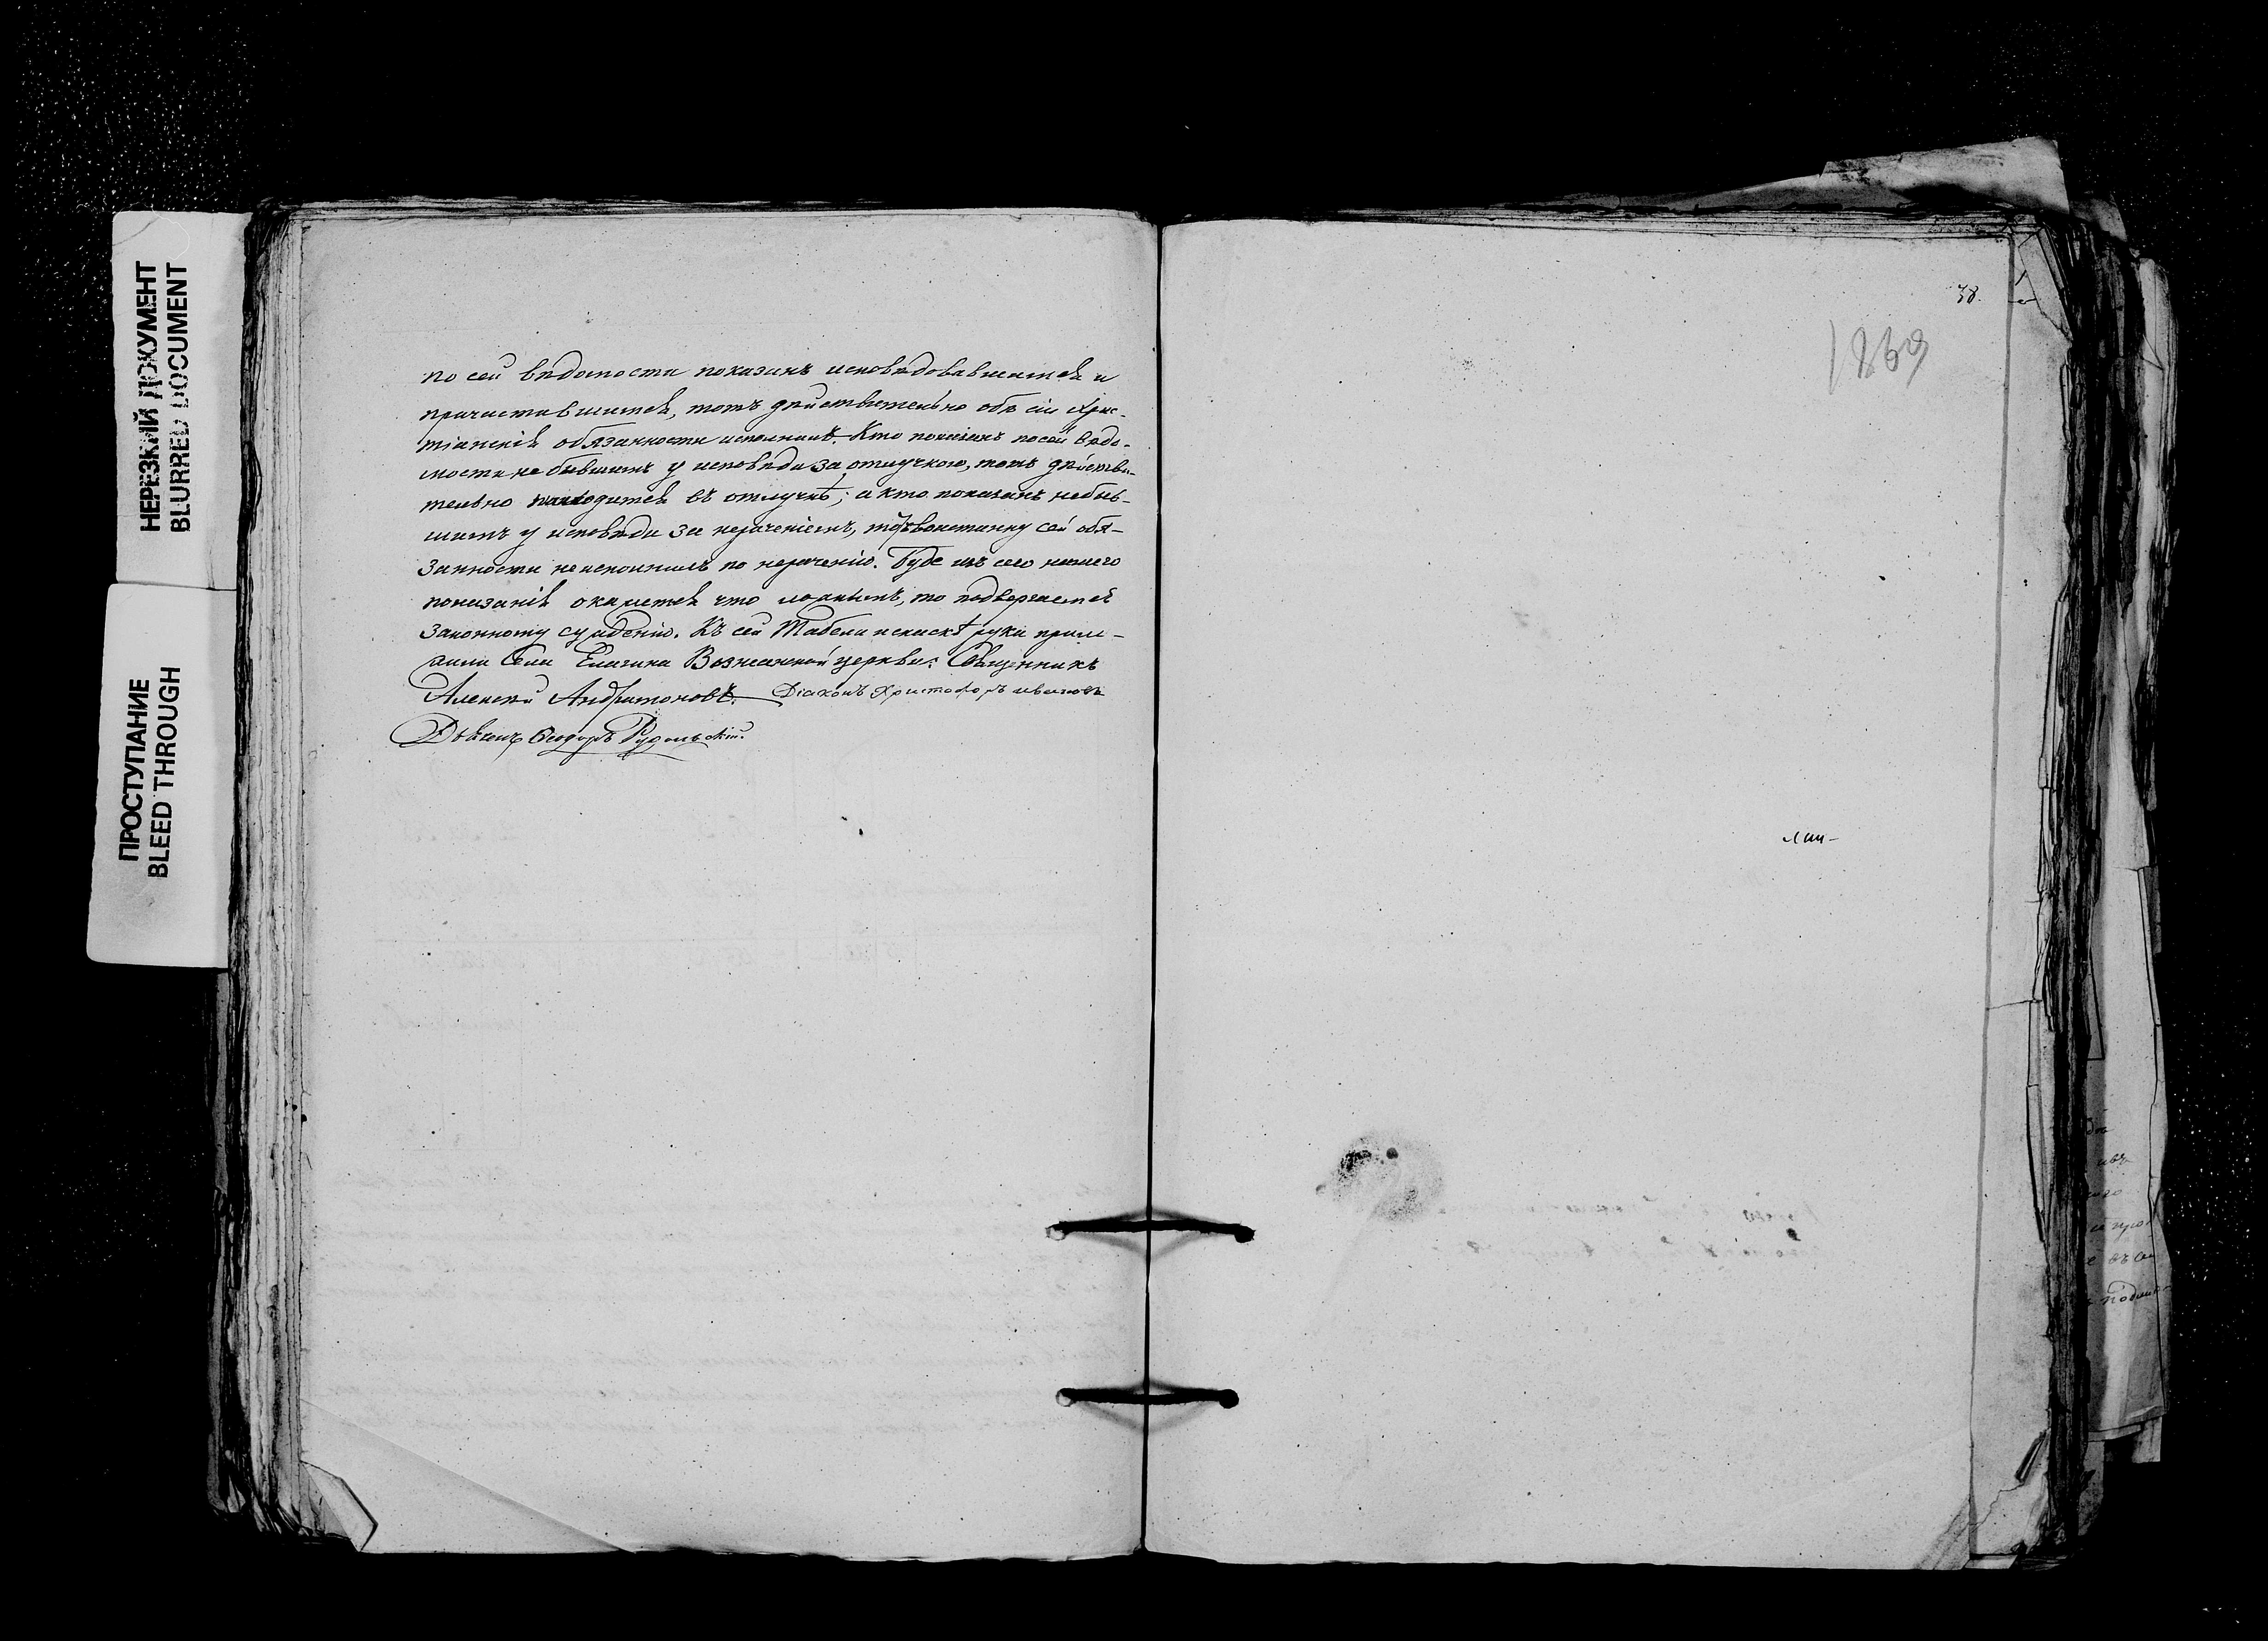 НЕРЕЗКИЙ ДОКУМЕНТ
BLURRED DOCUMENT
ПРОСТУПАНИЕ
BLEED THROUGH
по сей вѣдомости показанъ исповѣдовавшимся и
причастившимся, тотъ дѣйствительно обѣ сіи Хрис-
тіанскія обязанности исполнилъ. Кто показанъ по сей вѣдо-
мости не бывшимъ у исповѣди за отлучкою, тотъ дѣйстви-
тельно находится въ отлучкѣ; а кто показанъ небыв-
шимъ у исповѣди за нераченіемъ, воистинну сей обя-
занности не исполнилъ по нераченію. Буде изъ сего нашего
показанія окажется что ложнымъ, то подвергаемся
законному сужденію. Къ сей Табели и списку руки прило-
жили Села Вознесенской церкви: Священникъ
Алексѣй Андратоновъ. Діаконъ Христофоръ Ивановъ
Дьякъ Ѳеодоръ
38.
1869